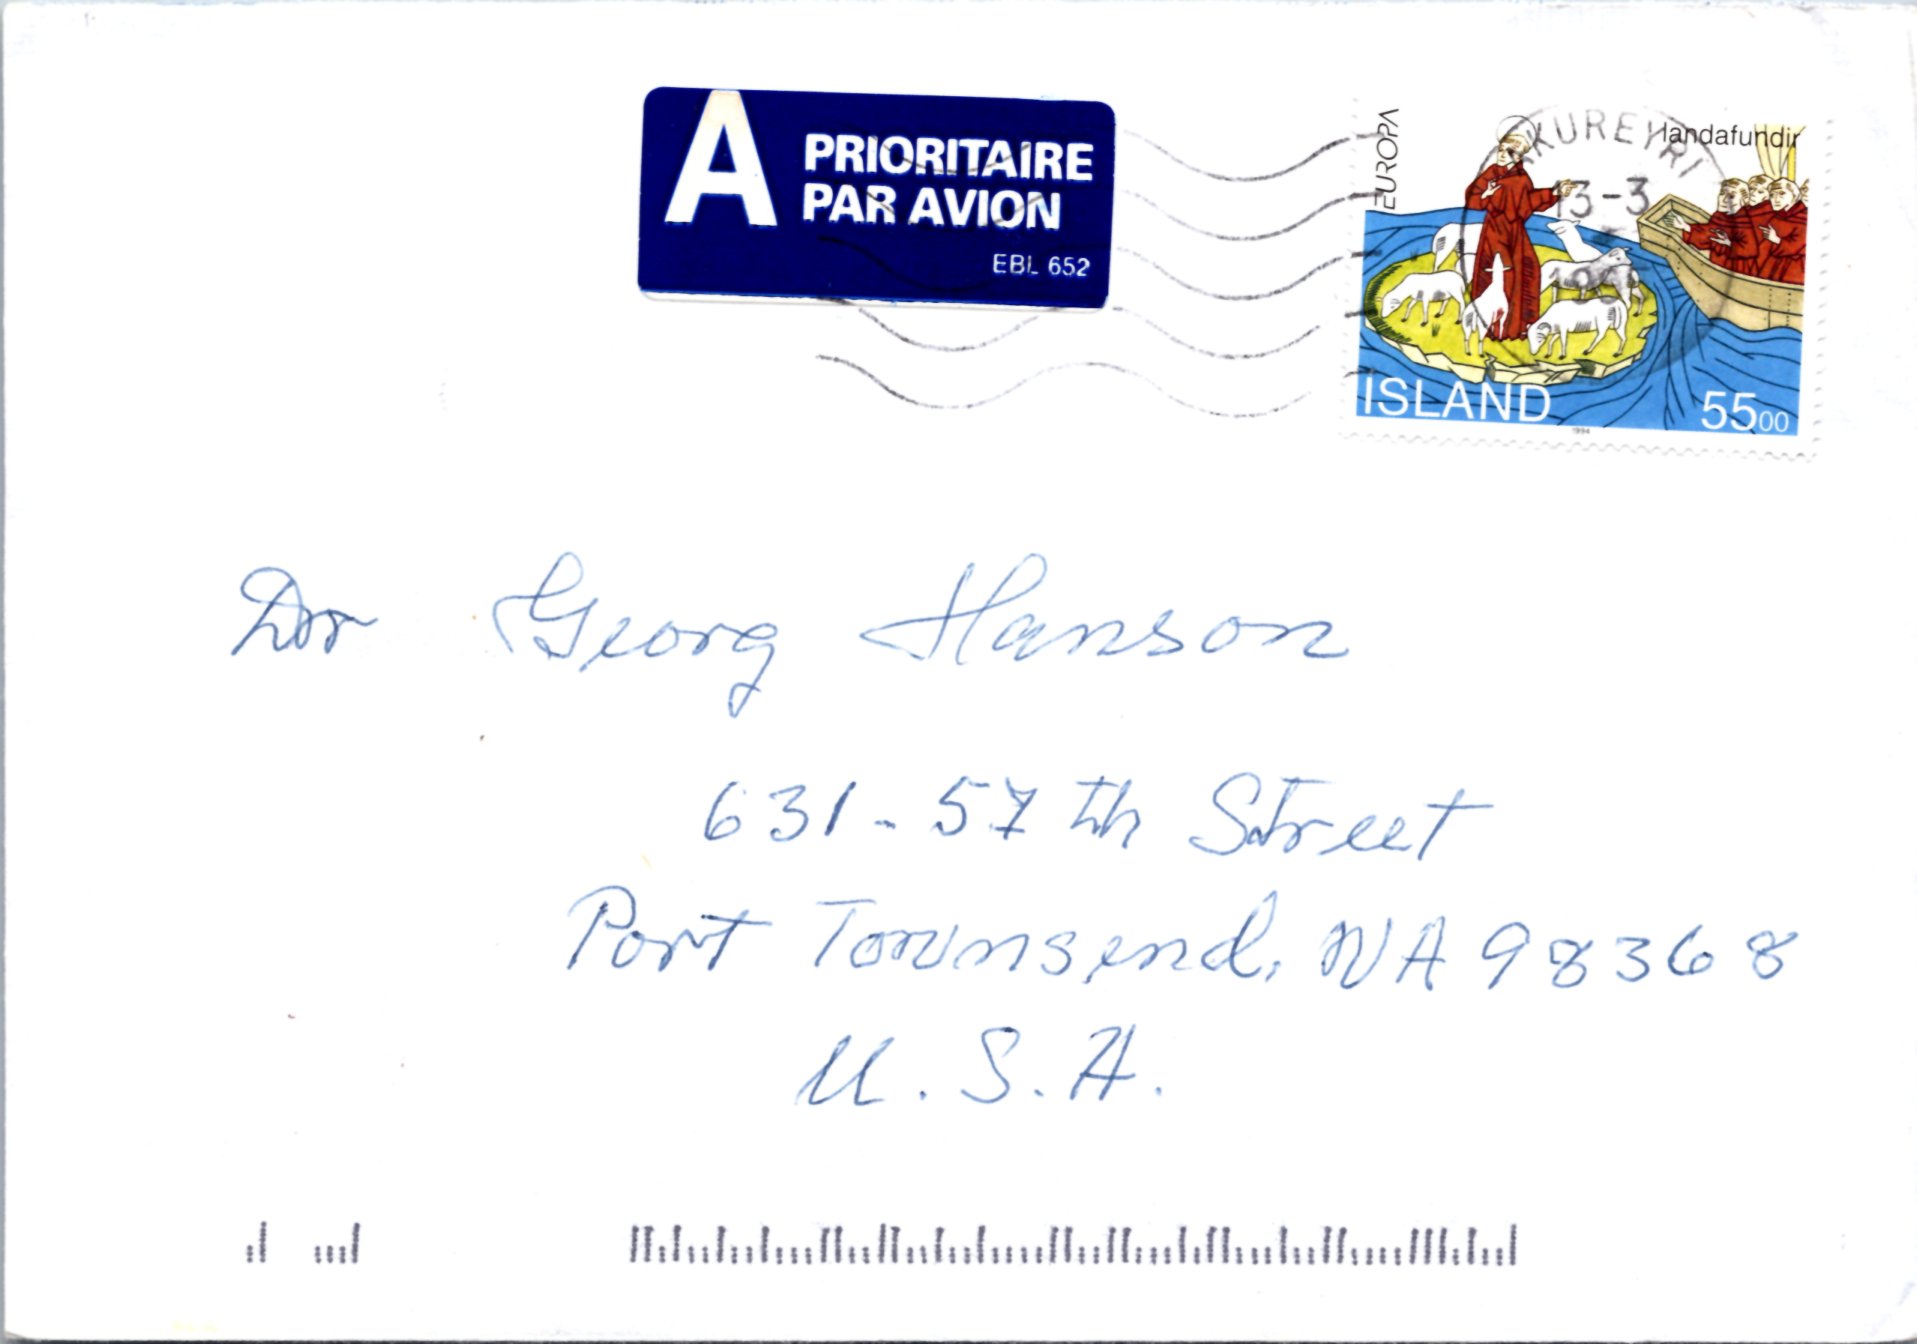 A PRIORITAIRE
PAR AVION
EBL 652
EUROPA
Landafundir
AKUREYRI
13-3
ISLAND
5500
1994
Dr Georg Hanson
631-57th Street
Port Townsend, WA 98368
U.S.A.